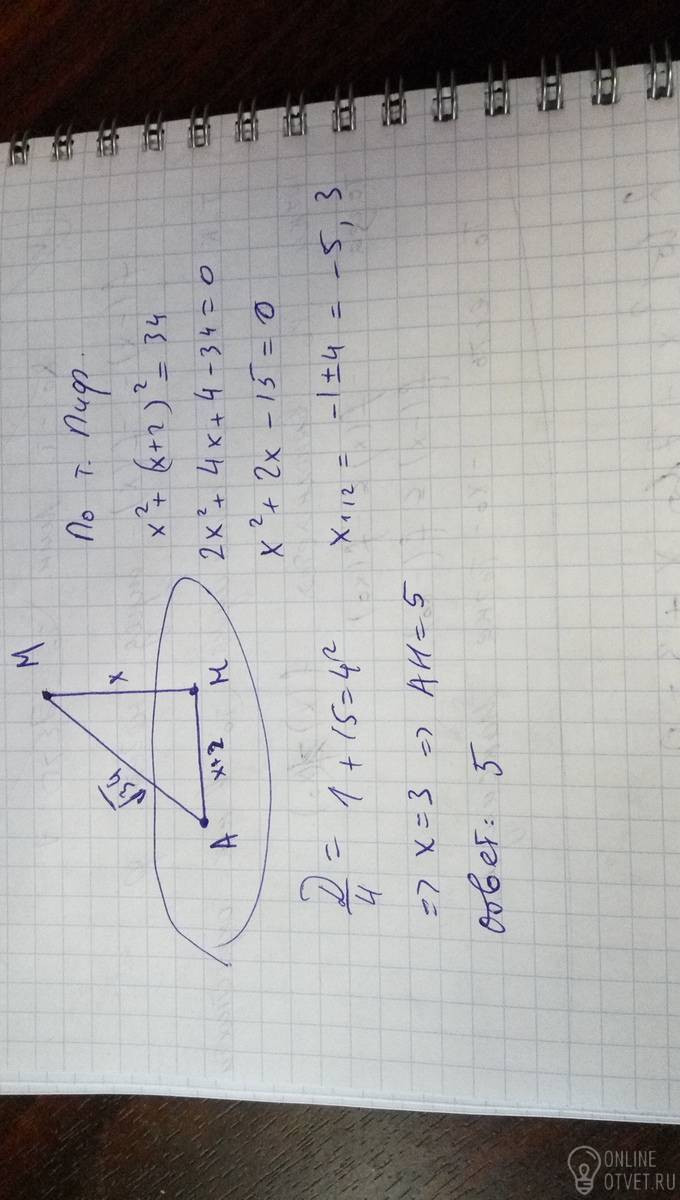 M
√34
x
A
x+2
H
По т. Пиф.
x²+(x+2)²=34
2x²+4x+4-34=0
x²+2x-15=0
D/4 = 1+15=4²
x₁,₂ = -1±4 = -5, 3
=> x=3 => AH=5
ответ: 5
ONLINE
OTVET.RU